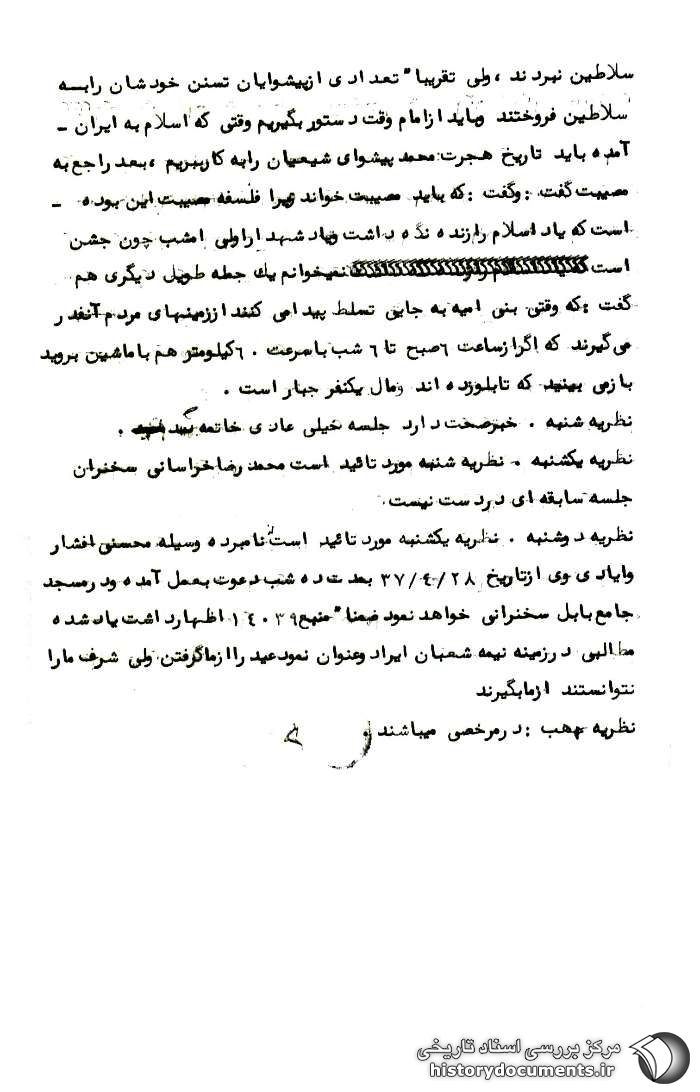 سلاطین نبردند ، ولی تقریبا" تعدادی ازپیشوایان تسنن خودشان رابه
سلاطین فروختند وباید ازامام وقت دستور بگیریم وقتی که اسلام به ایران -
آمده باید تاریخ هجرت محمد پیشوای شیعیان رابه کارببریم ، بعد راجع به
مصیبت گفت : وگفت : که باید مصیبت خواند زیرا فلسفه مصیبت این بوده -
است که یاد اسلام رازنده نگه داشت ویاد شهدا راولی امشب چون جشن
است نمیخوانم یك جمله طویل دیگری هم
گفت : که وقتی بنی امیه به جایی تسلط پیدامی کنند اززمینهای مردم آنقدر
می گیرند که اگرازساعت ٦صبح تا ٦ شب باسرعت ٦۰کیلومتر هم باماشین بروید
بازمی بینید که تابلوزده اند ومال یکنفر جبار است .
نظریه شنبه . خبرصحت دارد جلسه خیلی عادی خاتمه
نظریه یکشنبه . نظریه شنبه مورد تائید است محمد رضاخراسانی سخنران
جلسه سابقه ای دردست نیست.
نظریه دوشنبه . نظریه یکشنبه مورد تائید است نامبرده وسیله محسنی افشار
وایادی وی ازتاریخ ۳۷/٤/۲۸ بمدت ده شب دعوت بعمل آمده ودرمسجد
جامع بابل سخنرانی خواهد نمود ضمنا" منبع ۱٤۰۳۹ اظهارداشت یادشده
مطالبی درزمینه نیمه شعبان ایراد وعنوان نمود عید راازماگرفتن ولی شرف مارا
نتوانستند ازمابگیرند
نظریه : درمرخصی میباشند .
مرکز بررسی اسناد تاریخی
historydocuments.ir